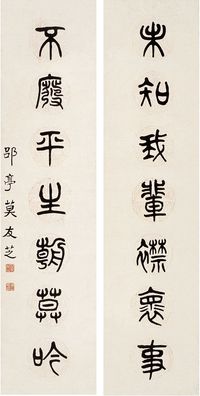 未知我輩襟裹事
不廢平生朝莫吟
邵亭莫友芝